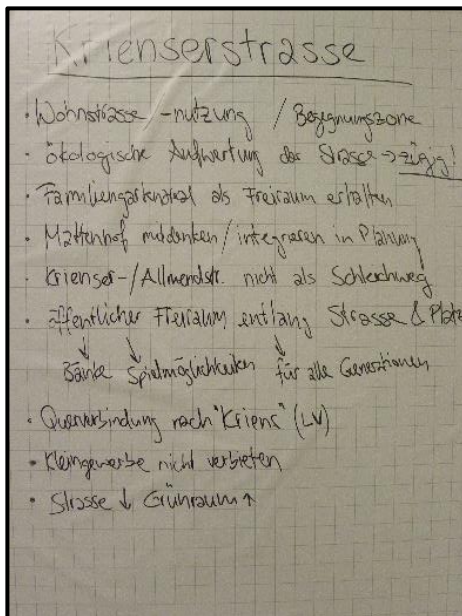 Krienserstrasse
• Wohnstrasse -nutzung / Begegnungszone
• ökologische Aufwertung der Strasse → zügig!
• Familiengartenareal als Freiraum erhalten
• Mattenhof mitdenken / integrieren in Planung
• Krienser-/Allmendstr. nicht als Schleichweg
• öffentlicher Freiraum entlang Strasse & Platz
↓ ↓ ↓
Bänke Spielmöglichkeiten für alle Generationen
• Querverbindung nach "Kriens" (LV)
• Kleingewerbe nicht verbieten
• Strasse ↓ Grünraum ↑